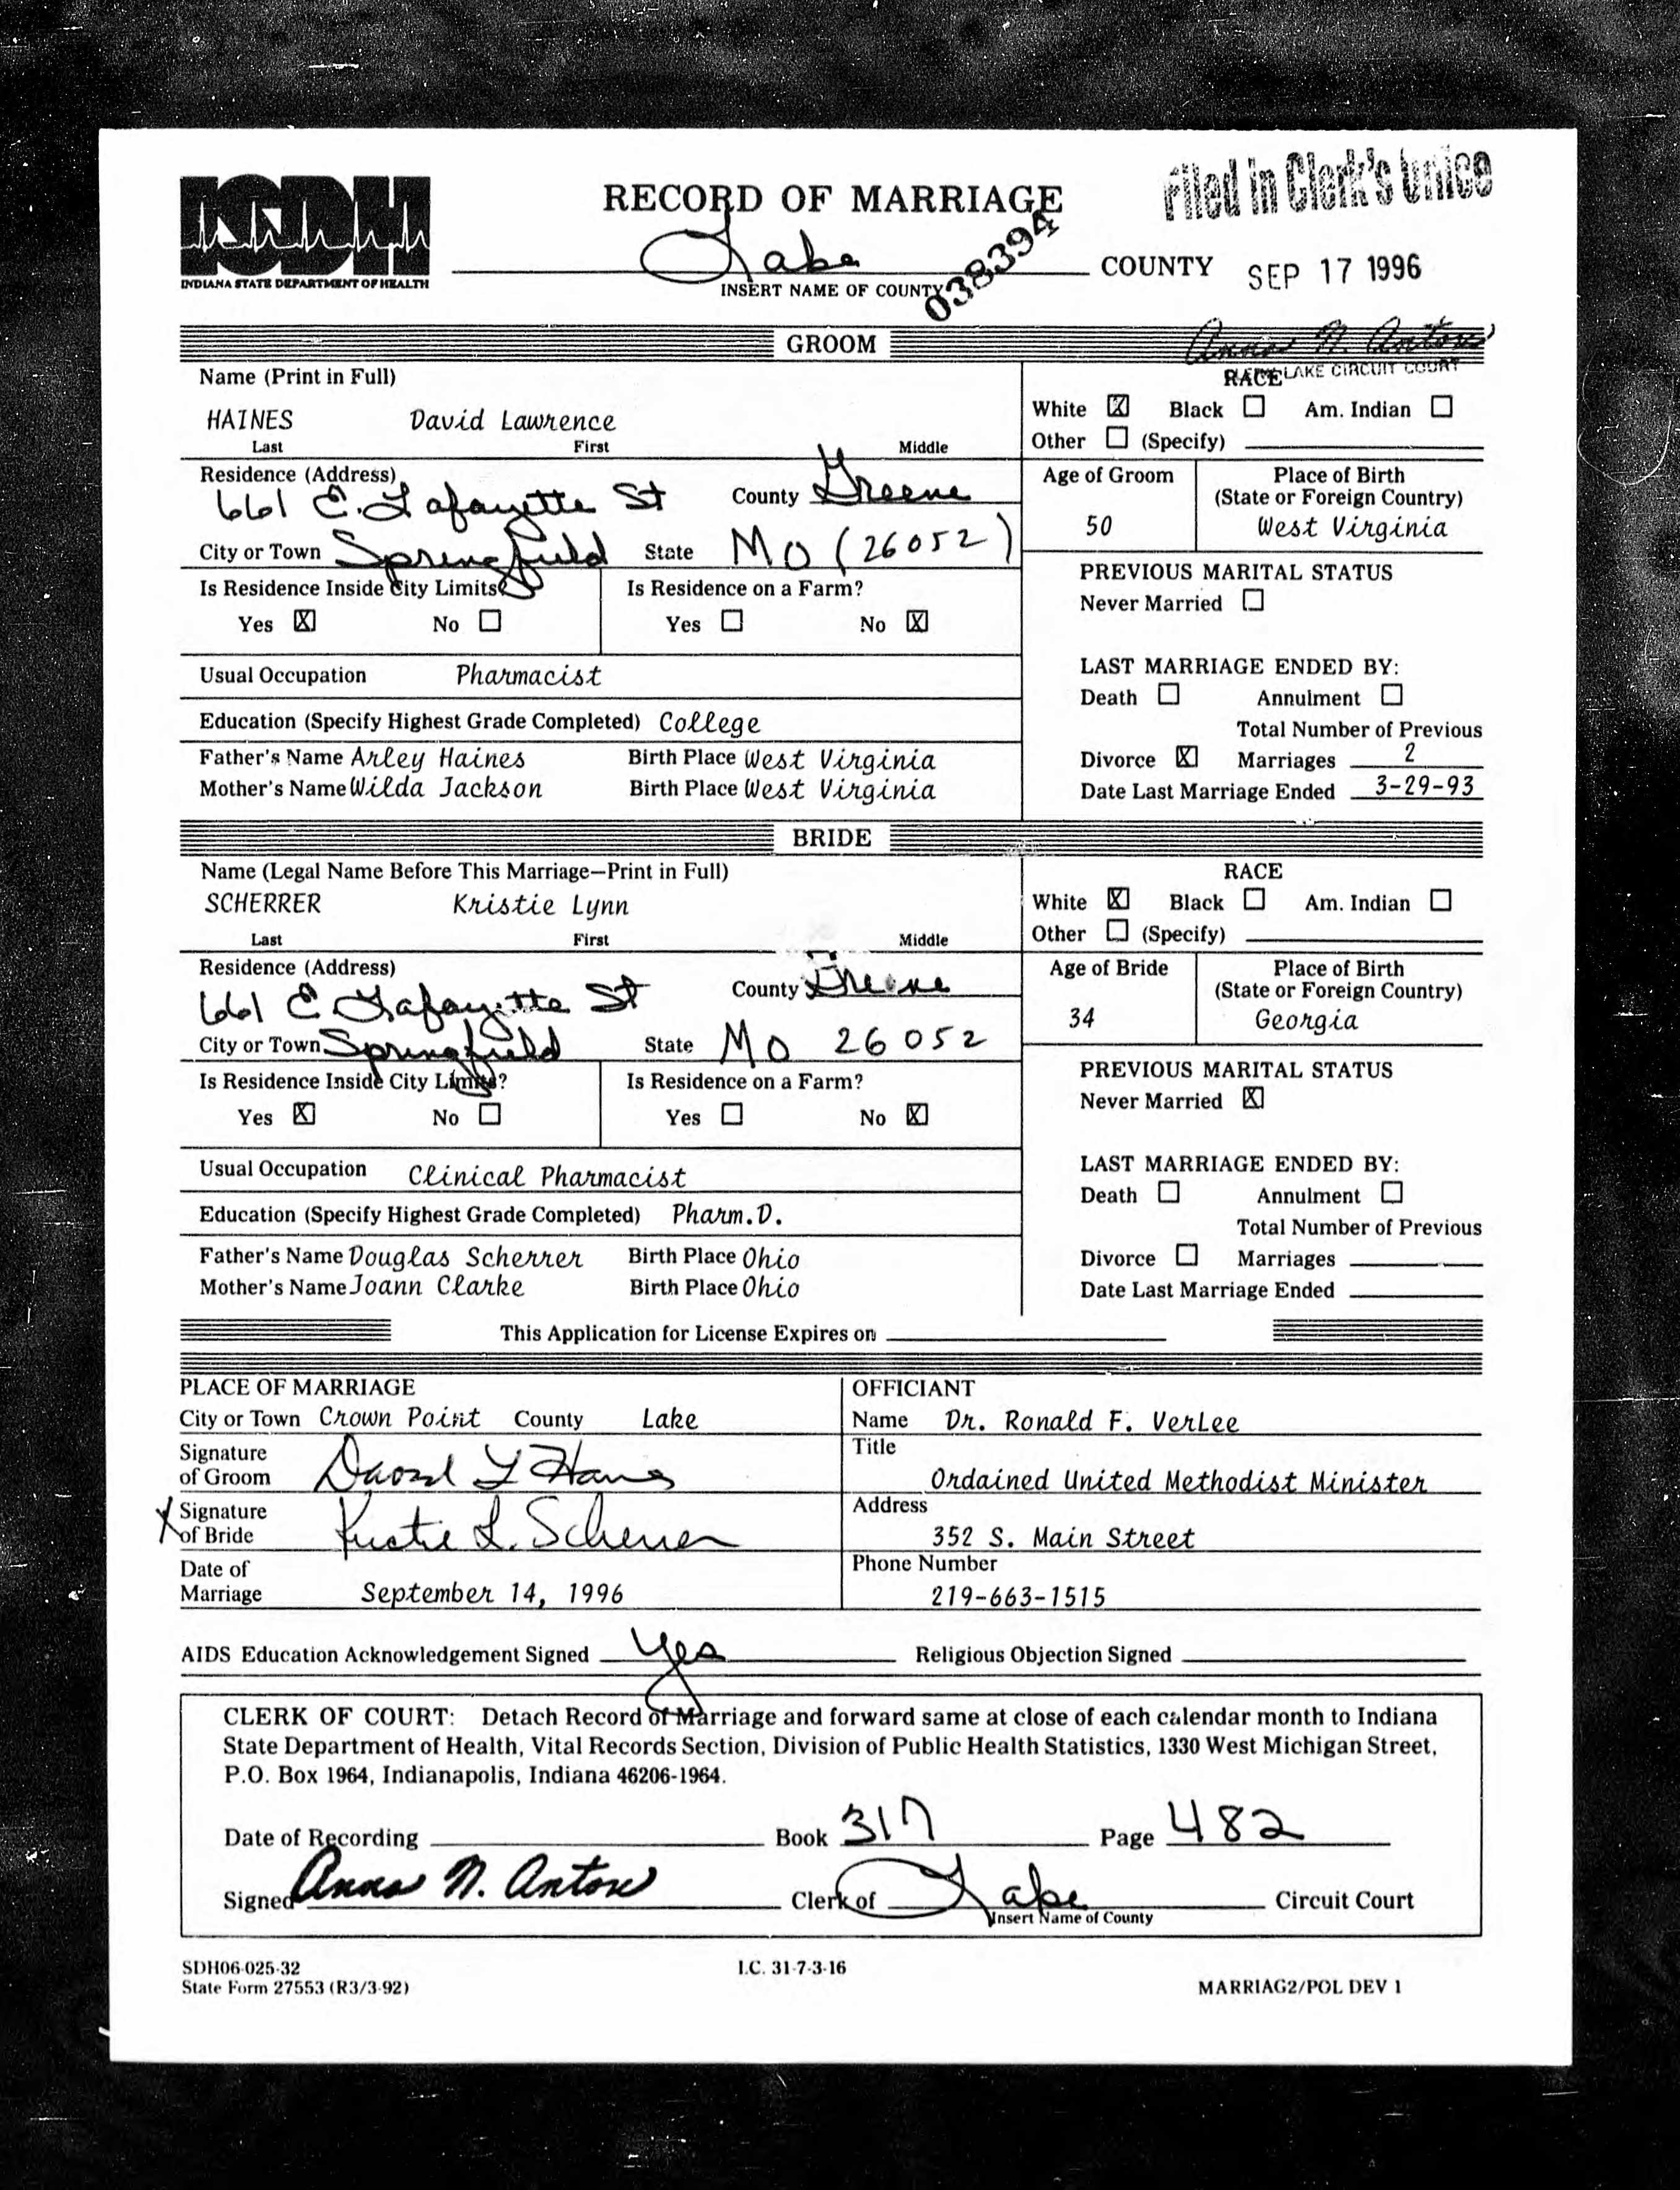 ISDH
INDIANA STATE DEPARTMENT OF HEALTH
RECORD OF MARRIAGE
Filed in Clerk's Office
Lake COUNTY SEP 17 1996
INSERT NAME OF COUNTY
038394
GROOM
Anna N. Anton
LAKE CIRCUIT COURT
Name (Print in Full) RACE
HAINES David Lawrence White ☒ Black ☐ Am. Indian ☐
Last First Middle Other ☐ (Specify)
Residence (Address) Age of Groom Place of Birth
661 E. Lafayette St County Greene (State or Foreign Country)
50 West Virginia
City or Town Springfield State MO (26052)
Is Residence Inside City Limits? Is Residence on a Farm? PREVIOUS MARITAL STATUS
Never Married ☐
Yes ☒ No ☐ Yes ☐ No ☒
Usual Occupation Pharmacist LAST MARRIAGE ENDED BY:
Death ☐ Annulment ☐
Education (Specify Highest Grade Completed) College Total Number of Previous
Father's Name Arley Haines Birth Place West Virginia Divorce ☒ Marriages 2
Mother's Name Wilda Jackson Birth Place West Virginia Date Last Marriage Ended 3-29-93
BRIDE
Name (Legal Name Before This Marriage—Print in Full) RACE
SCHERRER Kristie Lynn White ☒ Black ☐ Am. Indian ☐
Last First Middle Other ☐ (Specify)
Residence (Address) Age of Bride Place of Birth
661 E Lafayette St County Greene (State or Foreign Country)
34 Georgia
City or Town Springfield State MO 26052
Is Residence Inside City Limits? Is Residence on a Farm? PREVIOUS MARITAL STATUS
Yes ☒ No ☐ Yes ☐ No ☒ Never Married ☒
Usual Occupation Clinical Pharmacist LAST MARRIAGE ENDED BY:
Death ☐ Annulment ☐
Education (Specify Highest Grade Completed) Pharm.D. Total Number of Previous
Father's Name Douglas Scherrer Birth Place Ohio Divorce ☐ Marriages
Mother's Name Joann Clarke Birth Place Ohio Date Last Marriage Ended
This Application for License Expires on
PLACE OF MARRIAGE OFFICIANT
City or Town Crown Point County Lake Name Dr. Ronald F. VerLee
Signature of Groom David L Haines Title
Ordained United Methodist Minister
X Signature of Bride Kristie L. Scherrer Address
352 S. Main Street
Date of Marriage September 14, 1996 Phone Number
219-663-1515
AIDS Education Acknowledgement Signed yes Religious Objection Signed
CLERK OF COURT: Detach Record of Marriage and forward same at close of each calendar month to Indiana
State Department of Health, Vital Records Section, Division of Public Health Statistics, 1330 West Michigan Street,
P.O. Box 1964, Indianapolis, Indiana 46206-1964.
Date of Recording Book 317 Page 482
Signed Anna N. Anton Clerk of Lake Circuit Court
Insert Name of County
SDH06-025-32 I.C. 31-7-3-16
State Form 27553 (R3/3-92) MARRIAG2/POL DEV 1